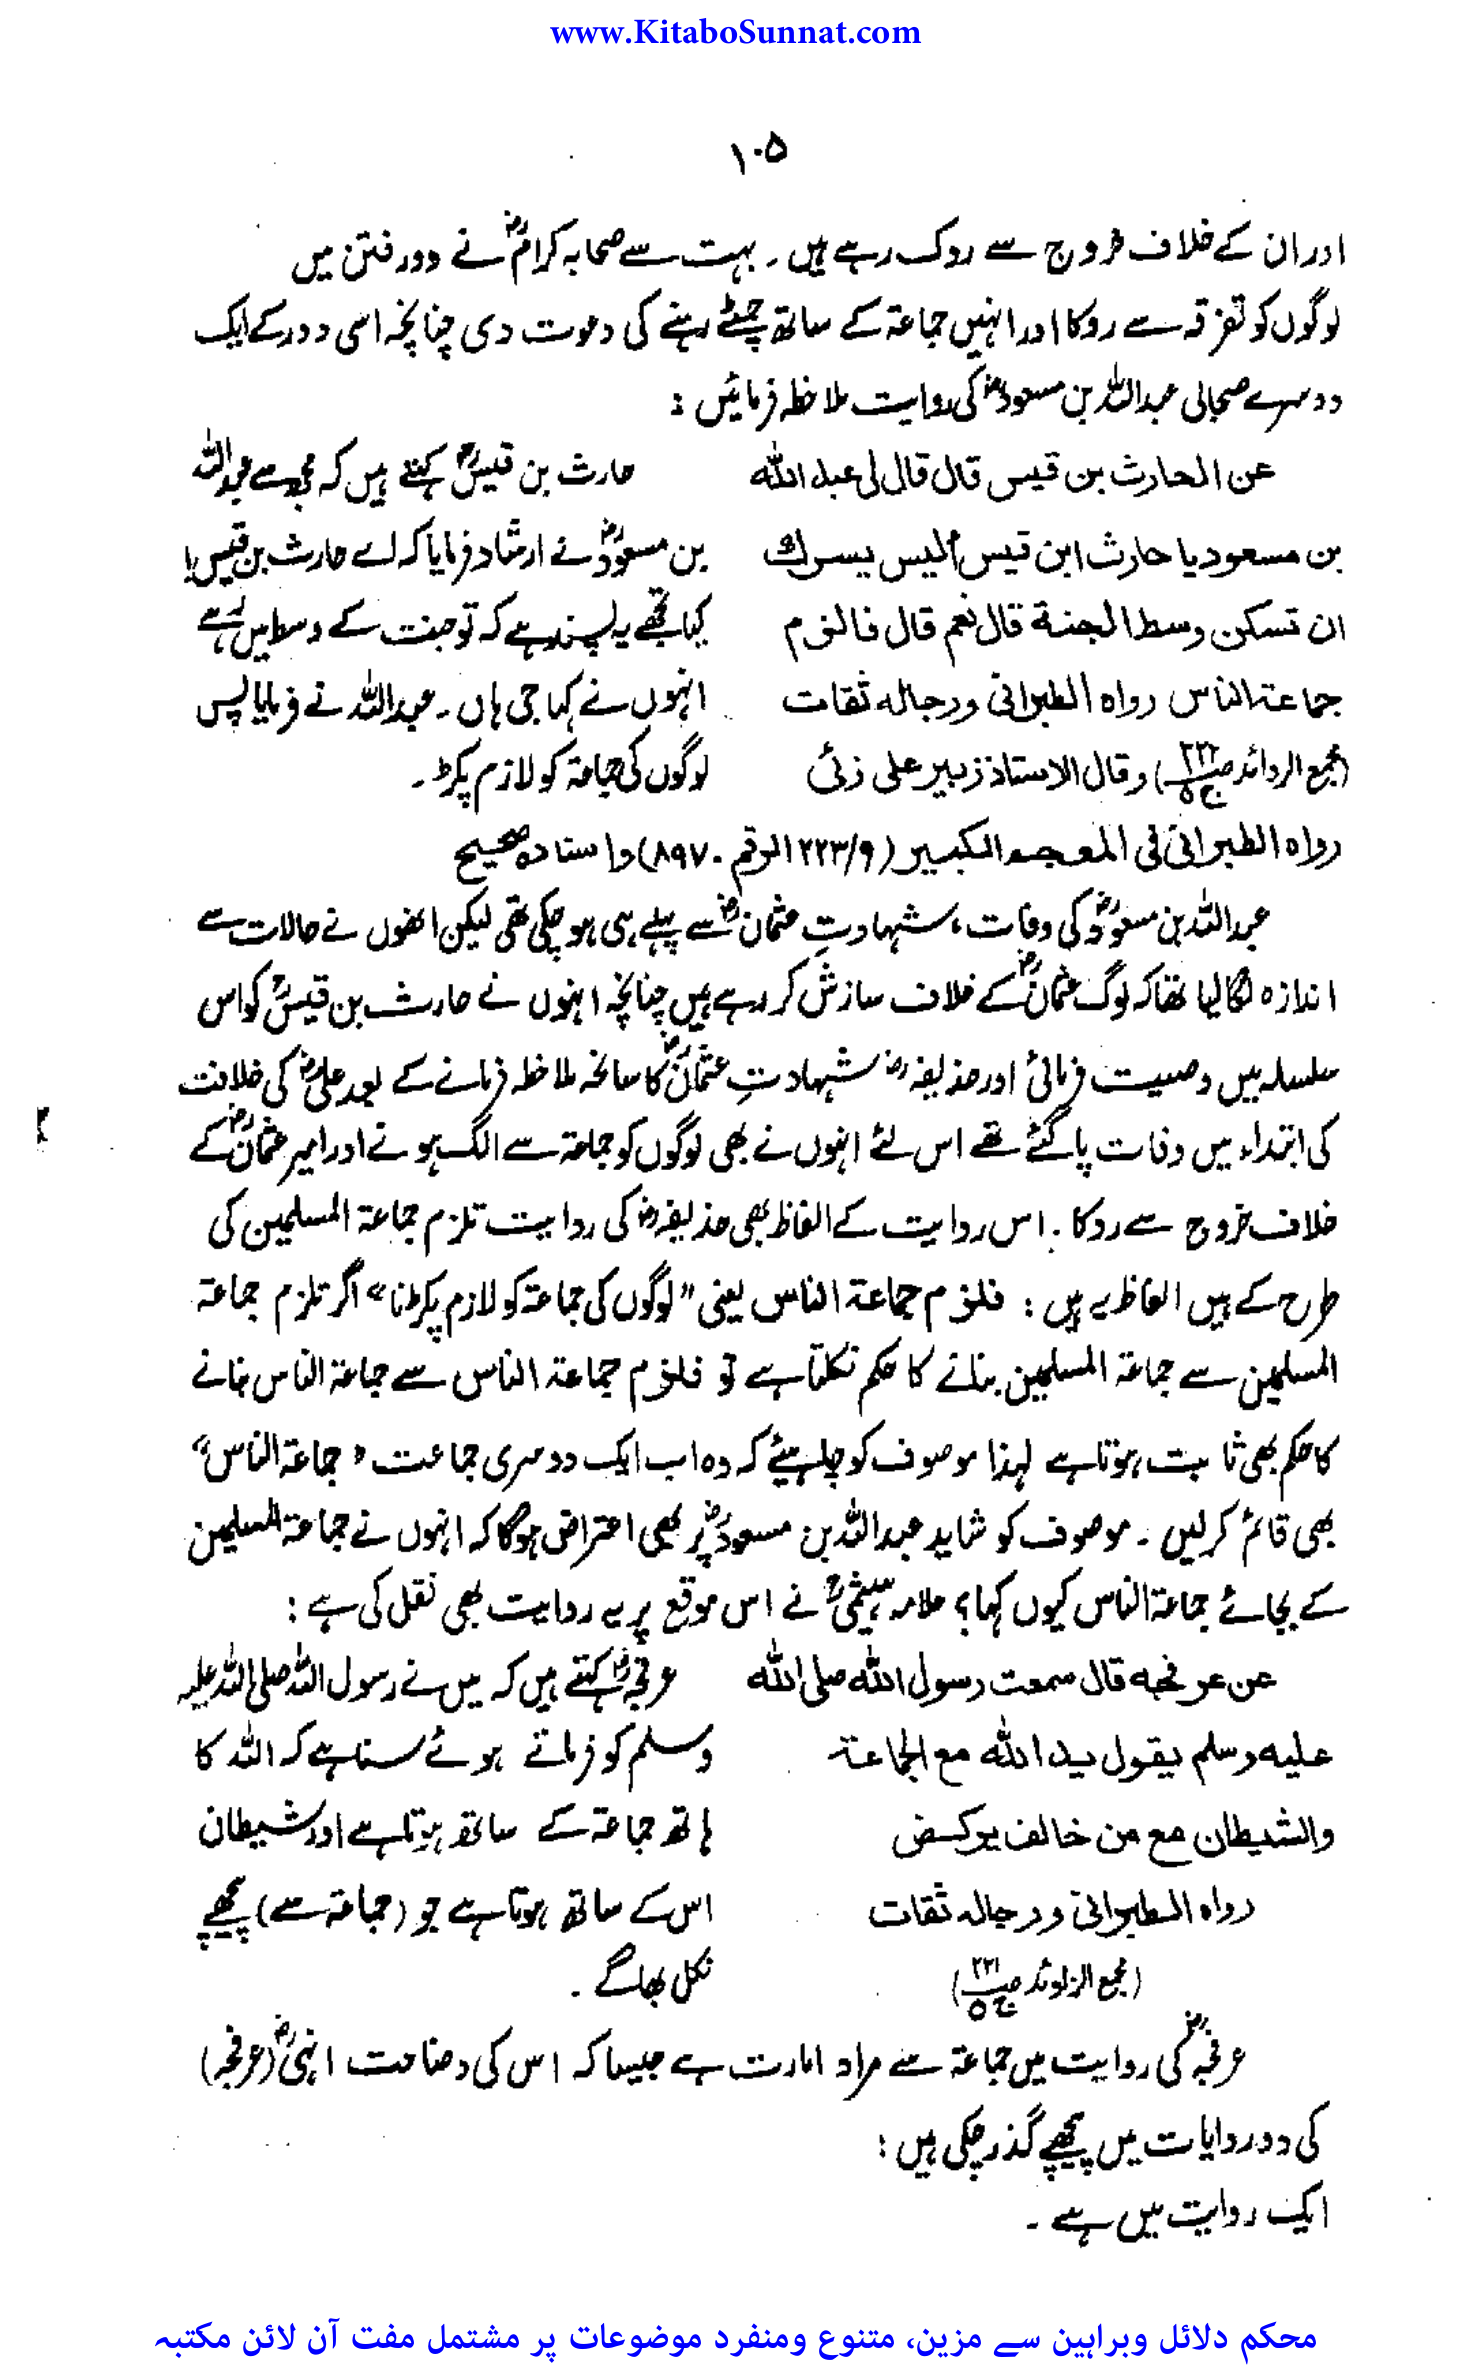 www.KitaboSunnat.com
۱۰۵
اور ان کے خلاف خروج سے روک رہے ہیں۔ بہت سے صحابہ کرامؓ نے دور فتن میں
لوگوں کو تفرقہ سے روکا اور انہیں جماعۃ کے ساتھ چمٹے رہنے کی دعوت دی چنانچہ اسی دور کے ایک
دوسرے صحابی عبداللہ بن مسعودؓ کی روایت ملاحظہ فرمائیں :
عن الحارث بن قیس قال قال لی عبد اللہ
بن مسعود یا حارث ابن قیس ألیس یسرك
ان تسکن وسط الجنة قال نعم قال فالزم
جماعة الناس رواہ الطبرانی ورجاله ثقات
(مجمع الزوائد ص۲۲۲ ج۵) وقال الاستاذ زبیر علی زئی
حارث بن قیسؒ کہتے ہیں کہ مجھ سے عبداللہ
بن مسعودؓ نے ارشاد فرمایا کہ اے حارث بن قیس یا
کیا تجھے یہ پسند ہے کہ تو جنت کے وسط میں رہے
انہوں نے کہا جی ہاں۔ عبداللہ نے فرمایا پس
لوگوں کی جماعۃ کو لازم پکڑ۔
رواہ الطبرانی فی المعجم الکبیر (۲۲۳/۹ الرقم ۸۹۷۰) واسنادہ صحیح
عبداللہ بن مسعودؓ کی وفات، شہادتِ عثمانؓ سے پہلے ہی ہو چکی تھی لیکن انھوں نے حالات سے
اندازہ لگا لیا تھا کہ لوگ عثمانؓ کے خلاف سازش کر رہے ہیں چنانچہ انہوں نے حارث بن قیسؒ کو اس
سلسلہ میں وصیت فرمائی اور حذیفہؓ شہادتِ عثمانؓ کا سانحہ ملاحظہ فرمانے کے بعد علیؓ کی خلافت
کی ابتداء میں وفات پا گئے تھے اس لئے انہوں نے بھی لوگوں کو جماعۃ سے الگ ہونے اور امیر عثمانؓ کے
خلاف خروج سے روکا۔ اس روایت کے الفاظ بھی حذیفہؓ کی روایت تلزم جماعۃ المسلمین کی
طرح کے ہیں الفاظ یہ ہیں : فلزم جماعۃ الناس یعنی "لوگوں کی جماعۃ کو لازم پکڑنا" اگر تلزم جماعۃ
المسلمین سے جماعۃ المسلمین بنانے کا حکم نکلتا ہے تو فلزم جماعۃ الناس سے جماعۃ الناس بنانے
کا حکم بھی ثابت ہوتا ہے لہذا موصوف کو چاہیئے کہ وہ اب ایک دوسری جماعت "جماعۃ الناس"
بھی قائم کر لیں۔ موصوف کو شاید عبداللہ بن مسعودؓ پر بھی اعتراض ہوگا کہ انہوں نے جماعۃ المسلمین
کے بجائے جماعۃ الناس کیوں کہا؟ علامہ ہیثمیؒ نے اس موقع پر یہ روایت بھی نقل کی ہے :
عن عرفجه قال سمعت رسول اللہ صلی اللہ
علیه وسلم یقول ید اللہ مع الجماعة
والشیطان مع من خالف یرکض
رواہ الطبرانی ورجاله ثقات
(مجمع الزوائد ص۲۲۱ ج۵)
عرفجہؓ کہتے ہیں کہ میں نے رسول اللہ صلی اللہ علیہ
وسلم کو فرماتے ہوئے سنا ہے کہ اللہ کا
ہاتھ جماعۃ کے ساتھ ہوتا ہے اور شیطان
اس کے ساتھ ہوتا ہے جو (جماعۃ سے) پیچھے
نکل بھاگے۔
عرفجہؓ کی روایت میں جماعۃ سے مراد امارت ہے جیسا کہ اس کی وضاحت انہیؓ (عرفجہ)
کی دو روایات میں پیچھے گذر چکی ہیں :
ایک روایت میں ہے۔
محکم دلائل وبراہین سے مزین، متنوع ومنفرد موضوعات پر مشتمل مفت آن لائن مکتبہ